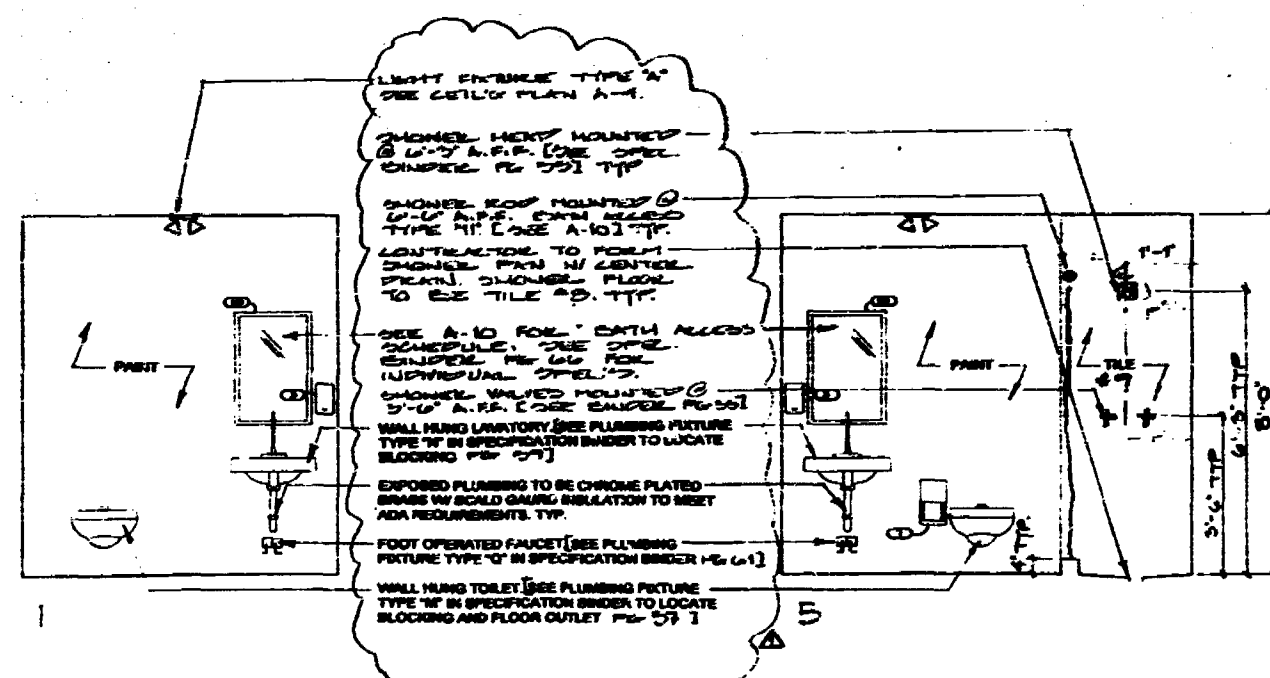 LIGHT FIXTURE TYPE "A"
SEE CEIL'G PLAN A-4.
SHOWER HEAD MOUNTED
@ 6'-3" A.F.F. [SEE SPEC.
BINDER PG 55] TYP
SHOWER ROD MOUNTED @
6'-6" A.F.F. BATH ACCESS
TYPE "11" [SEE A-10] TYP.
CONTRACTOR TO FORM
SHOWER PAN W/ CENTER
DRAIN. SHOWER FLOOR
TO BE TILE #8. TYP.
SEE A-10 FOR BATH ACCESS
SCHEDULE. SEE SPEC.
BINDER PG 66 FOR
INDIVIDUAL SPEC'S.
SHOWER VALVES MOUNTED @
3'-6" A.F.F. [SEE BINDER PG 55]
WALL HUNG LAVATORY. [SEE PLUMBING FIXTURE
TYPE "N" IN SPECIFICATION BINDER TO LOCATE
BLOCKING PG 59]
EXPOSED PLUMBING TO BE CHROME PLATED
BRASS W/ SCALD GAURD INSULATION TO MEET
ADA REQUIREMENTS. TYP.
FOOT OPERATED FAUCET [SEE PLUMBING
FIXTURE TYPE "Q" IN SPECIFICATION BINDER PG 61]
WALL HUNG TOILET. [SEE PLUMBING FIXTURE
TYPE "M" IN SPECIFICATION BINDER TO LOCATE
BLOCKING AND FLOOR OUTLET PG 57]
PAINT
PAINT
TILE
1'-1"
7"
4" TYP.
3'-6" TYP
6'-3" TYP
8'-0"
1
5